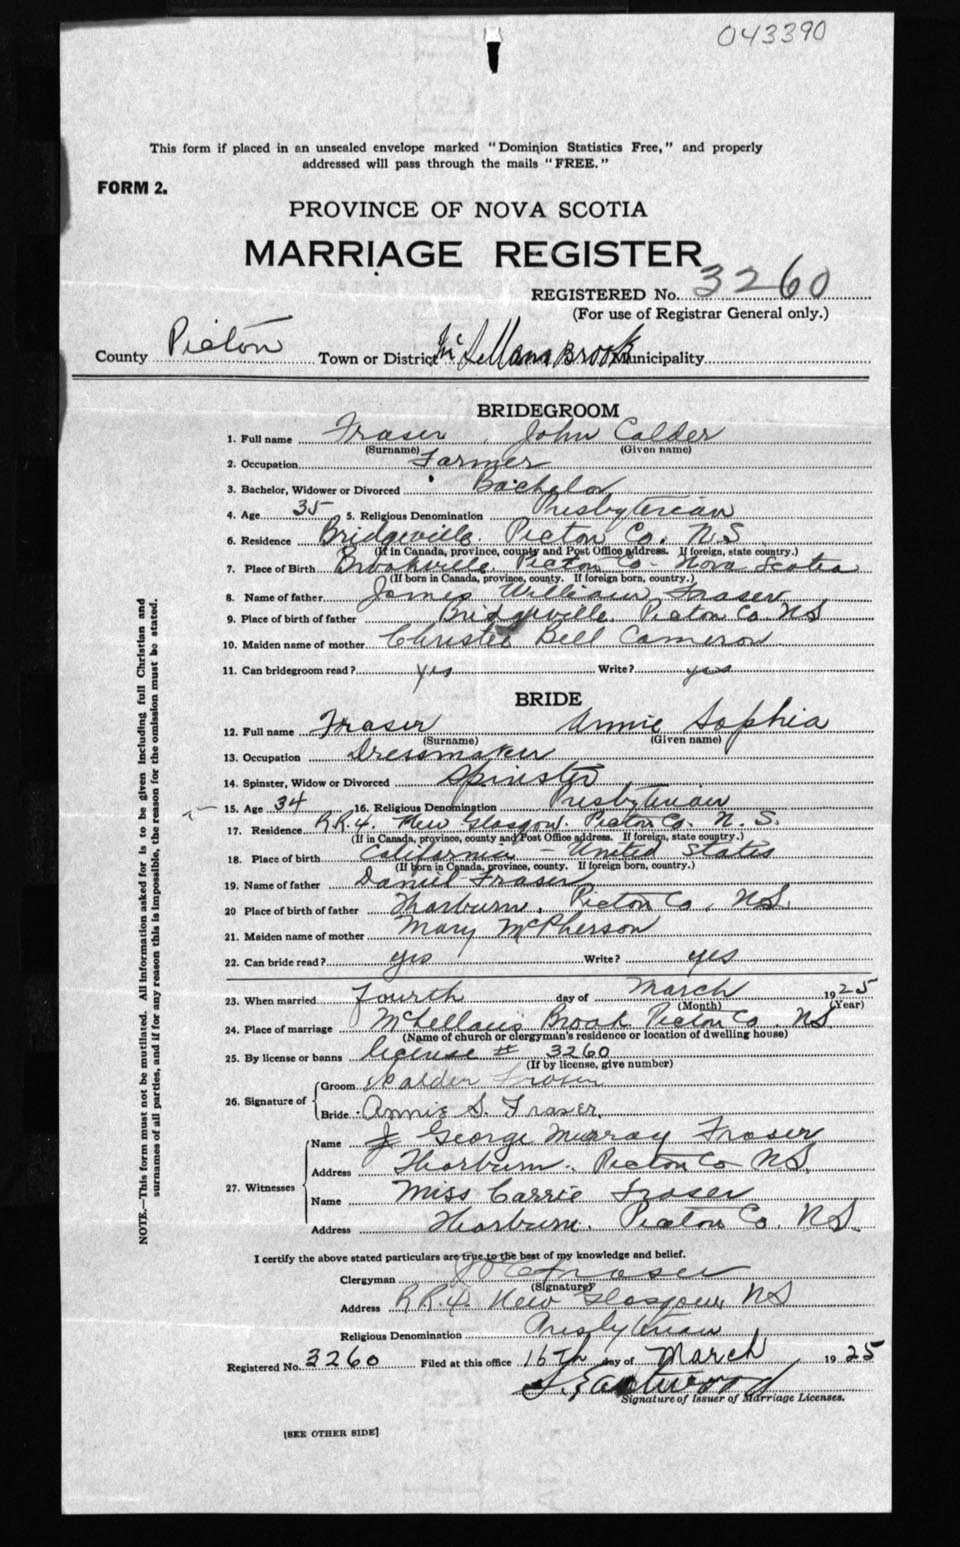 043390
This form if placed in an unsealed envelope marked "Dominion Statistics Free," and properly
addressed will pass through the mails "FREE."
FORM 2.
PROVINCE OF NOVA SCOTIA
MARRIAGE REGISTER
REGISTERED No. 3260
(For use of Registrar General only.)
County Pictou Town or District McLellans Brook Municipality
BRIDEGROOM
1. Full name Fraser, John Calder
(Surname) (Given name)
2. Occupation Farmer
3. Bachelor, Widower or Divorced Bachelor
4. Age 35 5. Religious Denomination Presbyterian
6. Residence Bridgeville, Pictou Co. N.S.
(If in Canada, province, county and Post Office address. If foreign, state country.)
7. Place of Birth Brookville, Pictou Co - Nova Scotia
(If born in Canada, province, county. If foreign born, country.)
8. Name of father James William Fraser
9. Place of birth of father Bridgeville, Pictou Co. N.S
10. Maiden name of mother Christie Bell Cameron
11. Can bridegroom read? yes Write? yes
BRIDE
12. Full name Fraser Annie Sophia
(Surname) (Given name)
13. Occupation Dressmaker
14. Spinster, Widow or Divorced Spinster
15. Age 34 16. Religious Denomination Presbyterian
17. Residence R.R.4. New Glasgow. Pictou Co. N.S.
(If in Canada, province, county and Post Office address. If foreign, state country.)
18. Place of birth California - United States
(If born in Canada, province, county. If foreign born, country.)
19. Name of father Daniel Fraser
20 Place of birth of father Thorburn, Pictou Co, N.S.
21. Maiden name of mother Mary McPherson
22. Can bride read? yes Write? yes
23. When married Fourth day of March 1925
(Month) (Year)
24. Place of marriage McLellan's Brook Pictou Co. N.S.
(Name of church or clergyman's residence or location of dwelling house)
25. By license or banns license # 3260
(If by license, give number)
26. Signature of
Groom Calder Fraser
Bride Annie S. Fraser
27. Witnesses
Name George Murray Fraser
Address Thorburn. Pictou Co N.S.
Name Miss Carrie Fraser
Address Thorburn. Pictou Co. N.S.
I certify the above stated particulars are true to the best of my knowledge and belief.
Clergyman Fraser
(Signature)
Address R.R.4. New Glasgow, N.S
Religious Denomination Presbyterian
Registered No. 3260 Filed at this office 16Th day of March 1925
Eastwood
Signature of Issuer of Marriage Licenses.
[SEE OTHER SIDE]
NOTE.—This form must not be mutilated. All information asked for is to be given including full Christian and
surnames of all parties, and if for any reason this is impossible, the reason for the omission must be stated.